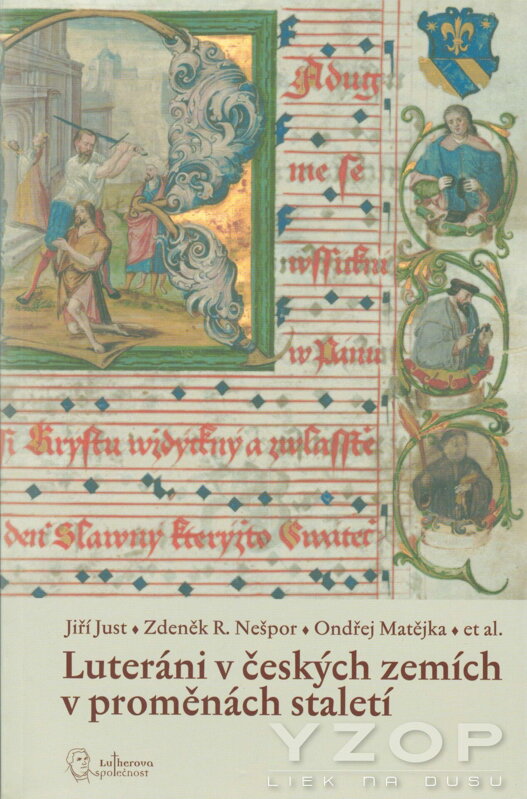 Radugt
me se
wssickni
w Panu
Krystu wzdyckny a zwlasstě
den Slawny kteryžto Swateč
Jiří Just ♦ Zdeněk R. Nešpor ♦ Ondřej Matějka ♦ et al.
Luteráni v českých zemích
v proměnách staletí
Lutherova
společnost
YZOP
LIEK NA DUŠU